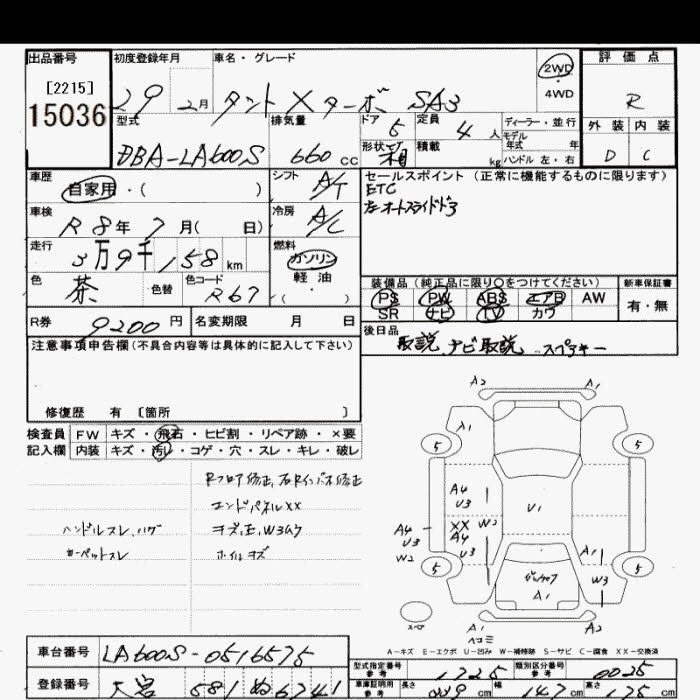 出品番号 初度登録年月 車名・グレード 2WD 評価点
[2215] 29 2月 タント Xターボ SA3 4WD R
15036 型式 排気量 ドア 5 定員 4人 ディーラー・並行 外装 内装
DBA-LA600S 660 cc 形状 箱 積載 kg モデル年式 年 ハンドル 左・右 D C
車歴 自家用・( ) シフト A/T セールスポイント(正常に機能するものに限ります)
ETC
車検 R 8年 7月( 日) 冷房 A/C 左オートスライドドア
走行 3万9千158km 燃料 ガソリン
色 茶 色替 色コード R67 軽油・( ) 装備品(純正品に限り○をつけてください) 新車保証書
PS PW ABS エアB AW 有・無
R券 9200円 名変期限 月 日 SR ナビ TV カワ
注意事項申告欄(不具合内容等は具体的に記入して下さい) 後日品 取説、ナビ取説、スペアキー
修復歴 有 [箇所 ]
検査員 FW キズ・飛石・ヒビ割・リペア跡・×要
記入欄 内装 キズ・汚レ・コゲ・穴・スレ・キレ・破レ
Rフロア修正、右Rインパネ修正
エンドパネルXX
ハンドルスレ、ハゲ キズ、E、W3有
カーペットスレ ホイルキズ
A2 A1
A1
5 5
A4 U3 U1
XX W2
A4 U3 A4 U3
W2
A1
5 W3 5
A1
A1 A1
ヘコミ
A-キズ E-エクボ U-凹み W-補修跡 S-サビ C-腐食 XX-交換済
車台番号 LA600S-0516575 型式指定番号 参考 類別区分番号 参考 0025
登録番号 大宮 581 ぬ 6741 車庫証明用 参考 長さ cm 幅 147 cm 高さ cm